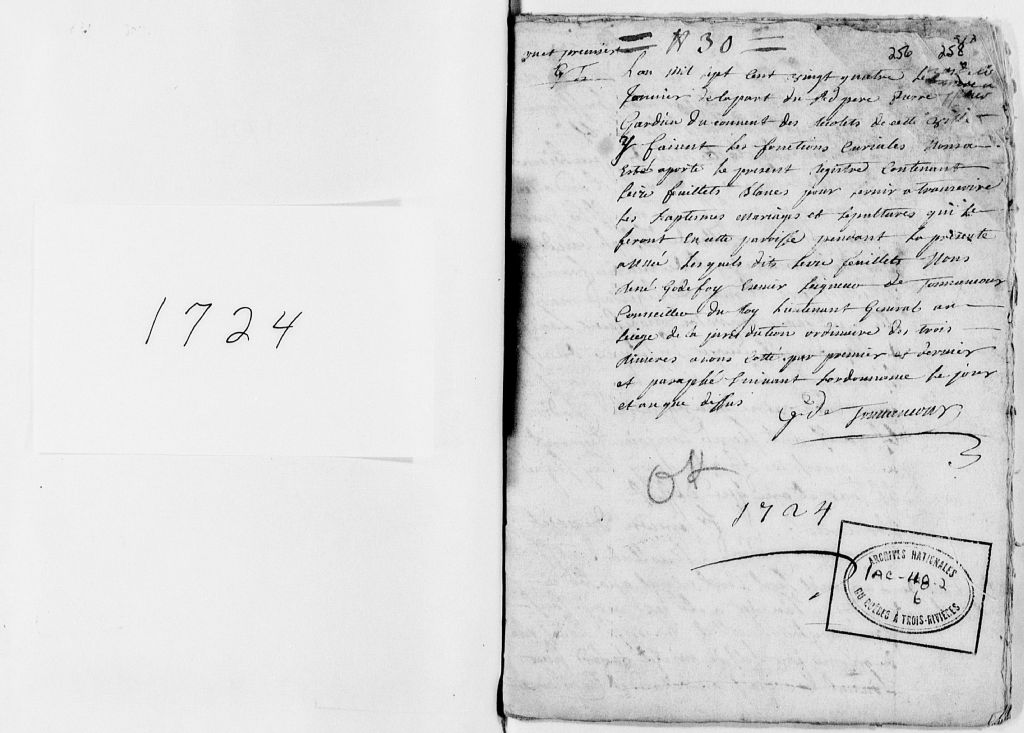 1724
N 30
256 258
feuillet premier
G T
Lan mil sept cent vingt quatre le
Janvier de la part du Rd pere
Gardien du couvent des recolets de cette ville
y faisant les fonctions Curiales Nous a
esté aporté le present registre Contenant
seize feuillets blancs pour servir a transcrire
les baptesmes mariages et sepultures qui se
feront en cette paroisse pendant la presente
année lesquels dits seize feuillets Nous
René Godefroy Escuier seigneur de Tonnancour
Conseiller du Roy Lieutenant General au
siege de la jurisdiction ordinaire des trois
Rivieres avons cotté par premier et dernier
et paraphé suivant lordonnance le jour
et an que dessus
G de Tonnancour
OK
1724
ARCHIVES NATIONALES
1AC-48-2
6
DU QUÉBEC À TROIS-RIVIÈRES